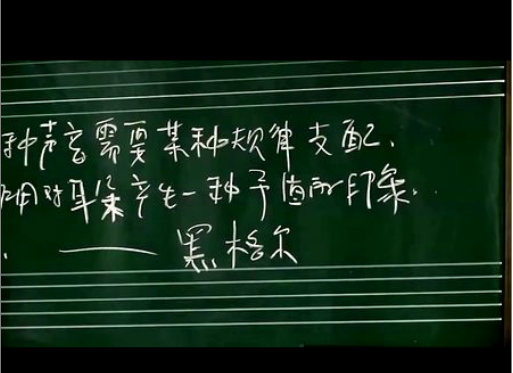 种声音需要某种规律支配.
对耳朵产生一种予值的印象.
. —— 黑格尔